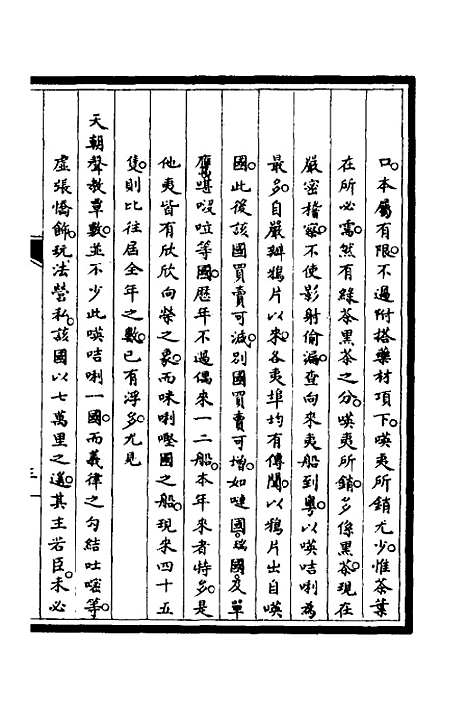 口。本屬有限。不過附搭藥材項下。㗸夷所銷尤少。惟茶葉
在所必需。然有綠茶黑茶之分。㗸夷所銷。多係黑茶。現在
嚴密稽察。不使影射偷漏。查向來夷船到粵。以㗸咭唎為
最多。自嚴辦鴉片以來。各夷埠均有傳聞。以鴉片出自㗸
國。此後該國買賣可減。別國買賣可增。如嗹國。瑞國。及單
鷹。𠸄啵啦等國。歷年不過偶來一二船。本年來者特多。是
他夷皆有欣欣向榮之象。而咪唎㗐國之船。現來四十五
隻。則比往屆全年之數。已有浮多。尤見
天朝聲教覃敷。並不少此㗸咭唎一國。而義律之勾結吐嘧等。
虛張憍飾。玩法營私。該國以七萬里之遙。其主若臣。未必
三